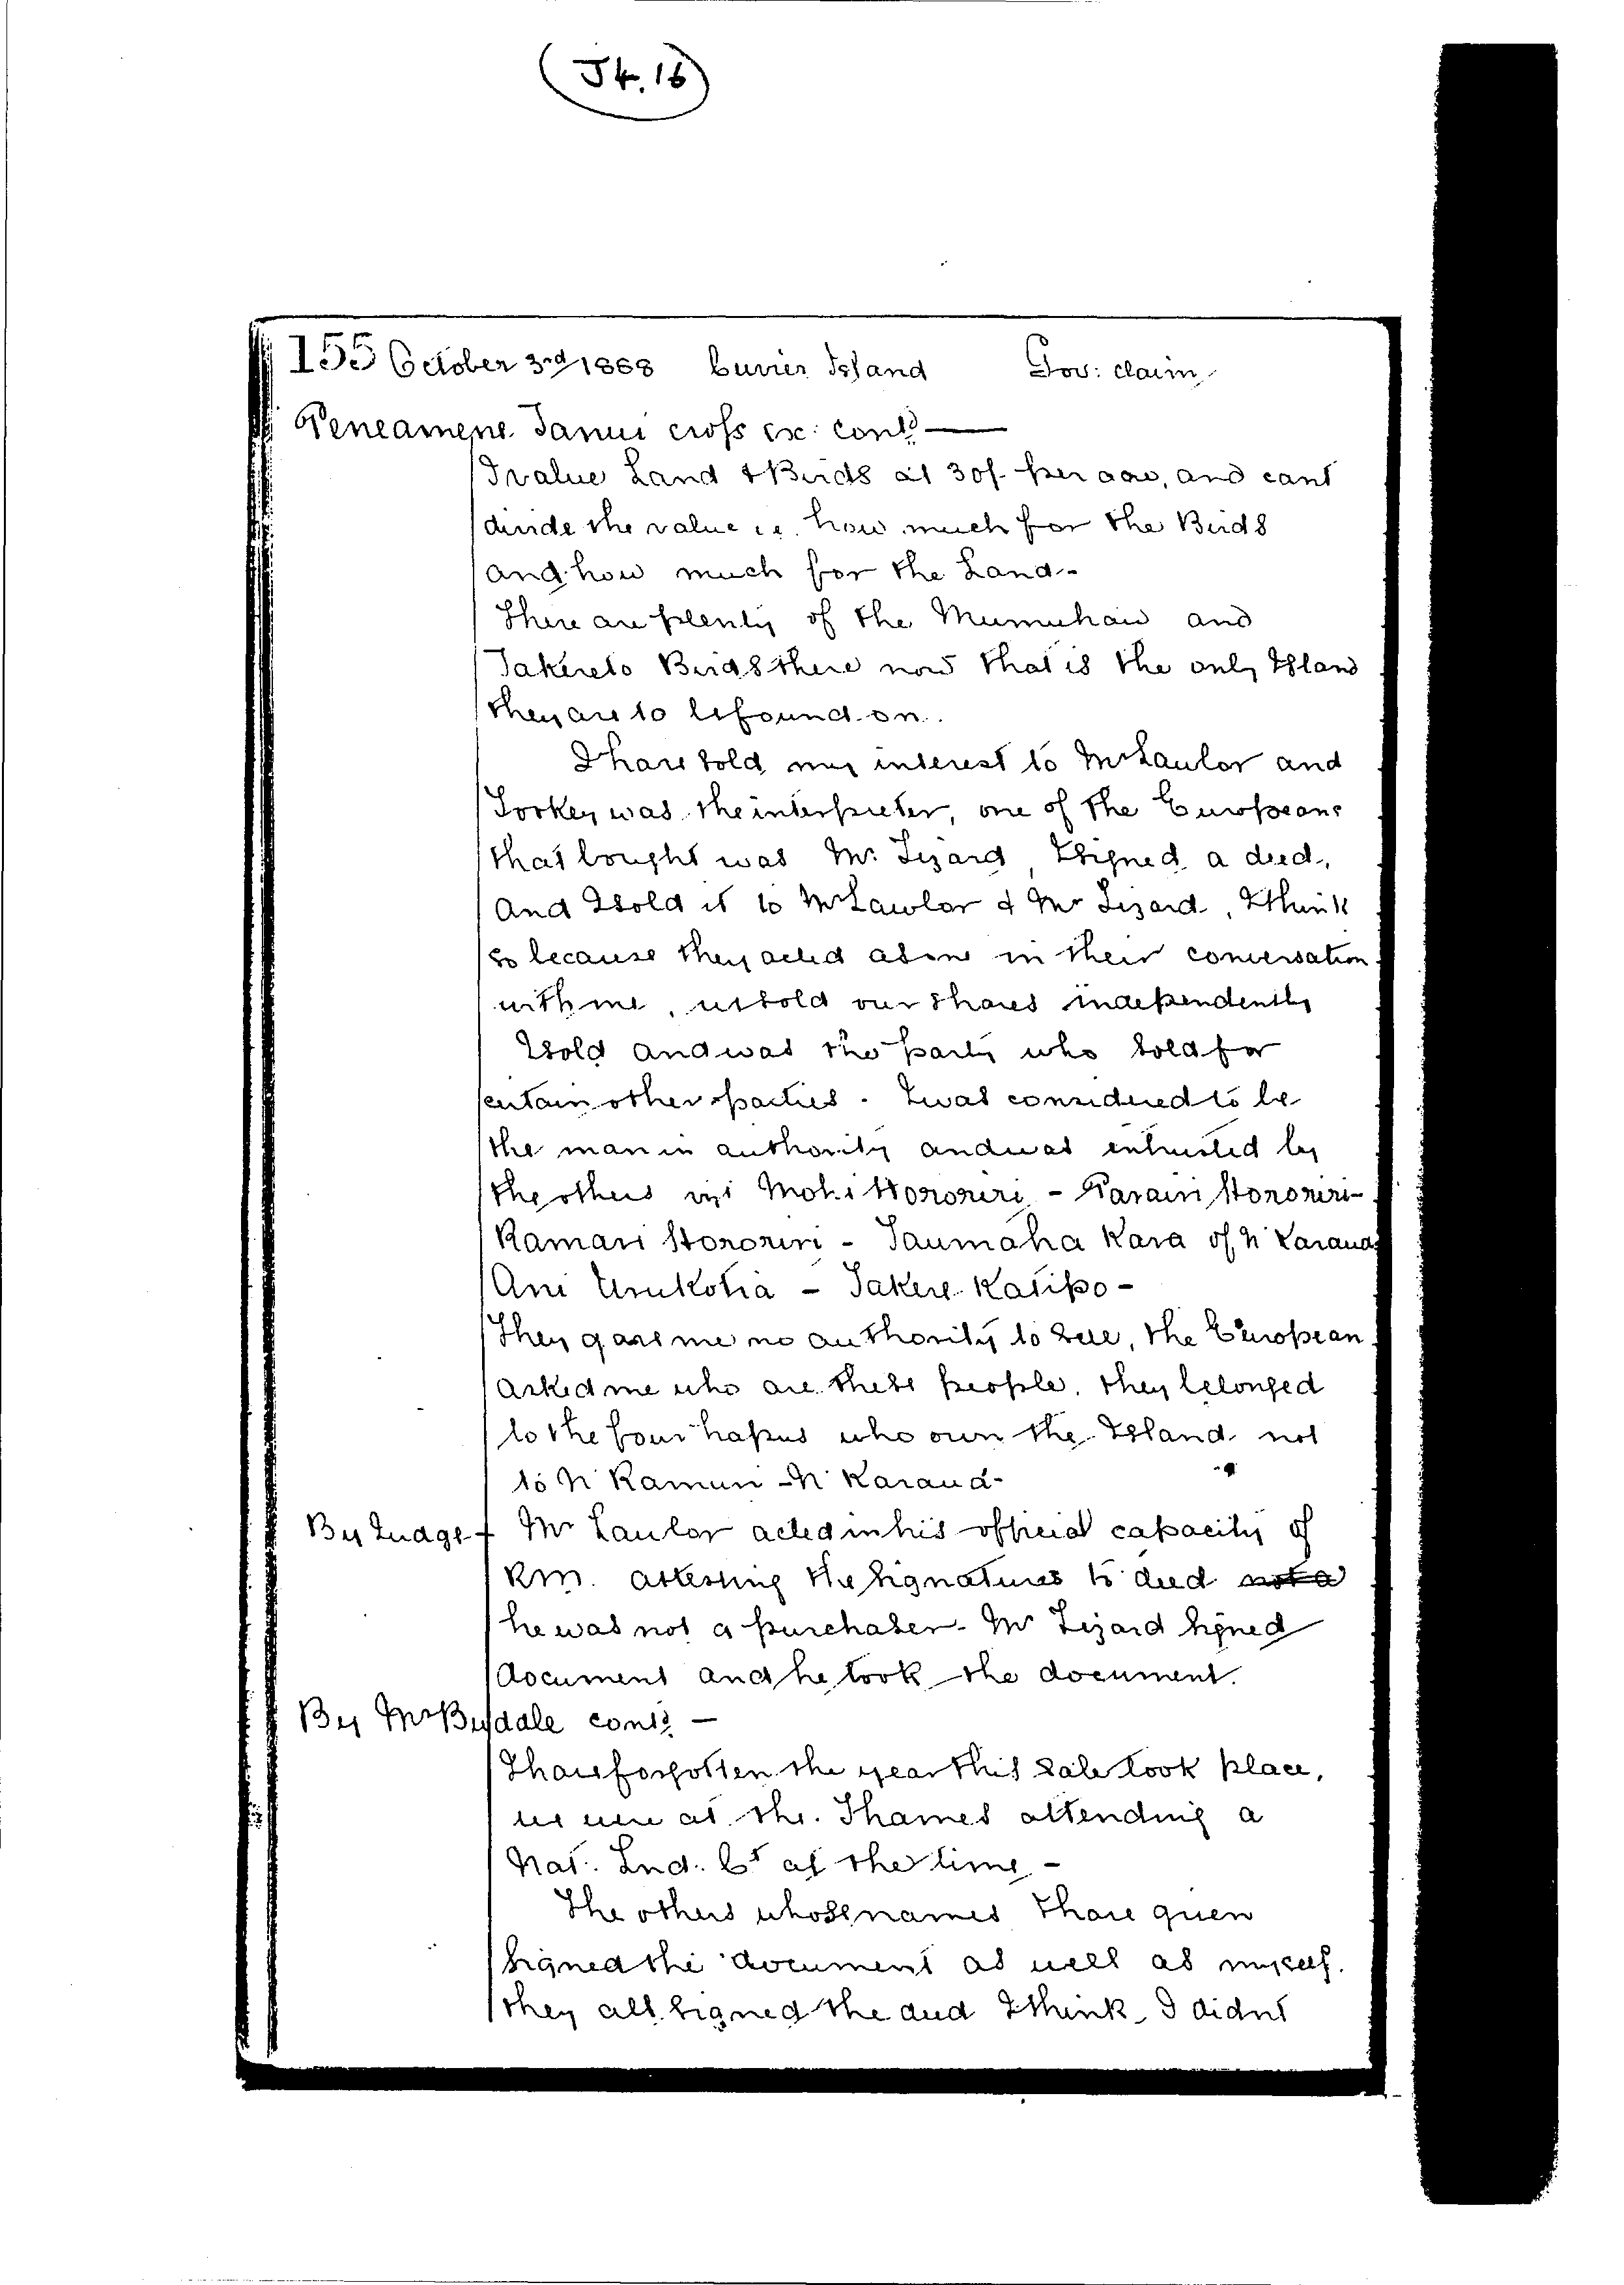 (J4.16)
155 October 3rd 1888 Cuvier Island Gov: claim
Peneamene Tanui cross ex: contd —
I value Land & Birds at 30/- per acre, and cant
divide the value i.e. how much for the Birds
and how much for the Land -
There are plenty of the Mumuhau and
Takereto Birds there now that is the only Island
they are to be found on.
I have sold my interest to Mr Lawlor and
Sorkey was the interpreter, one of the Europeans
that bought was Mr. Lizard, I signed a deed,
And I sold it to Mr Lawlor & Mr Lizard, I think
so because they acted alone in their conversation
with me, we sold our shares independently
I sold and was the party who sold for
certain other parties. I was considered to be
the man in authority and was entrusted by
the others viz: Mohi Hororiri - Paraini Hororiri -
Kamari Hororiri - Taumaha Kara of N Karaua,
Ani Urukohia - Takere Katipo -
They gave me no authority to sell, the European
asked me who are these people, they belonged
to the four hapus who own the Island not
to N Ramuri - N Karaua -
By Judge - Mr Lawlor acted in his official capacity of
R.M. attesting the signatures to deed not a
he was not a purchaser - Mr Lizard signed
document and he took the document.
By Mr Bysdale contd -
I have forgotten the year this sale took place,
we were at the Thames attending a
Nat. Lnd. Ct at the time -
The others whose names I have given
signed the document as well as myself.
they all signed the deed I think - I didnt